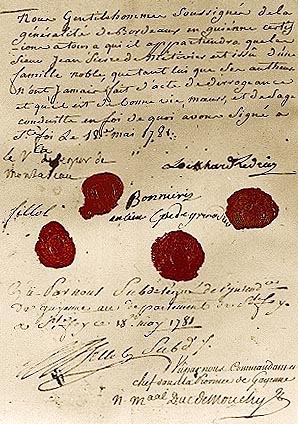 Nous Gentilshommes Soussignés de la
generalité de Bordeaux en Guienne certif
ions a tous a qui il appartiendra que le
Sieur Jean de Metivier est issû d'une
famille noble, que tant lui que Ses autheurs
N'ont Jamais fait d'acte de dérogeance
et qu'il est de bonne vie mœurs, et de sage
conduitte en foi de quoi avons Signé a
S.te foi Le 18.e mai 1781.
le V.
Montazeau
Bonnieres
fillol
ancien
Par nous Subdelegué de
de Guyenne au departement de S.te foy
a S.te foy ce 18.e may 1781
Subd.
Vû par nous Commandant en
chef dans la Province de Guyenne
Le M.aal Duc De Mouchy